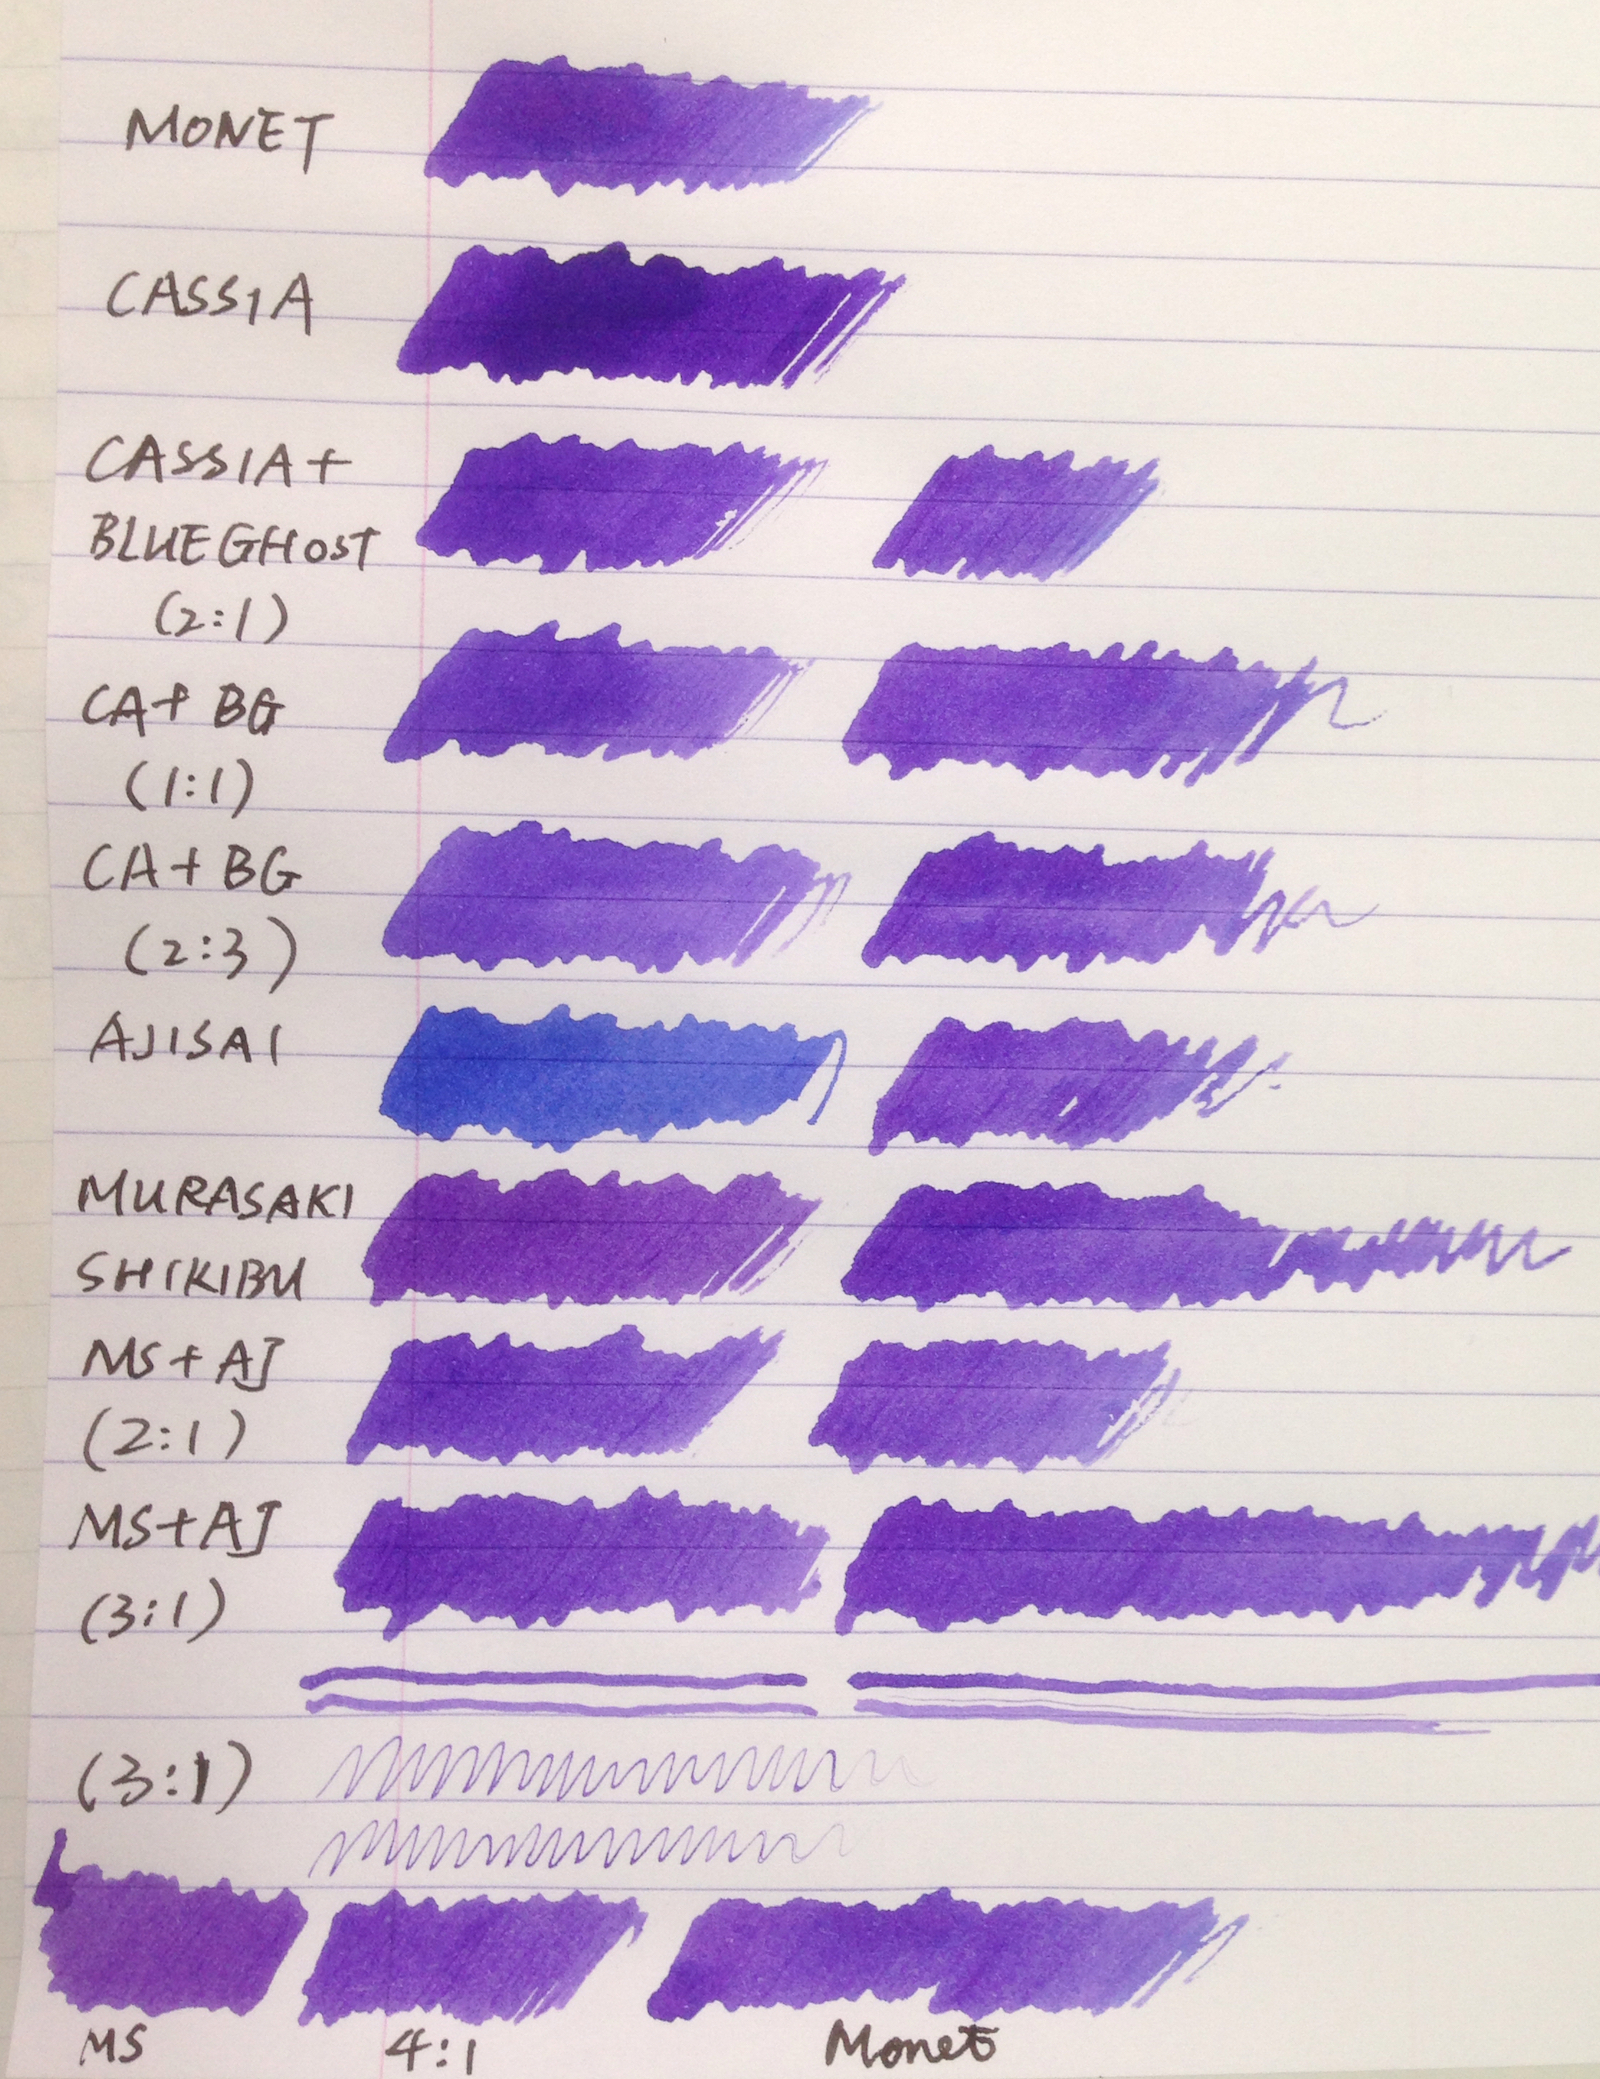 MONET
CASSIA
CASSIA+
BLUE GHOST
(2:1)
CA+ BG
(1:1)
CA+ BG
(2:3)
AJISAI
MURASAKI
SHIKIBU
MS+AJ
(2:1)
MS+AJ
(3:1)
(3:1)
MS 4:1 Monet